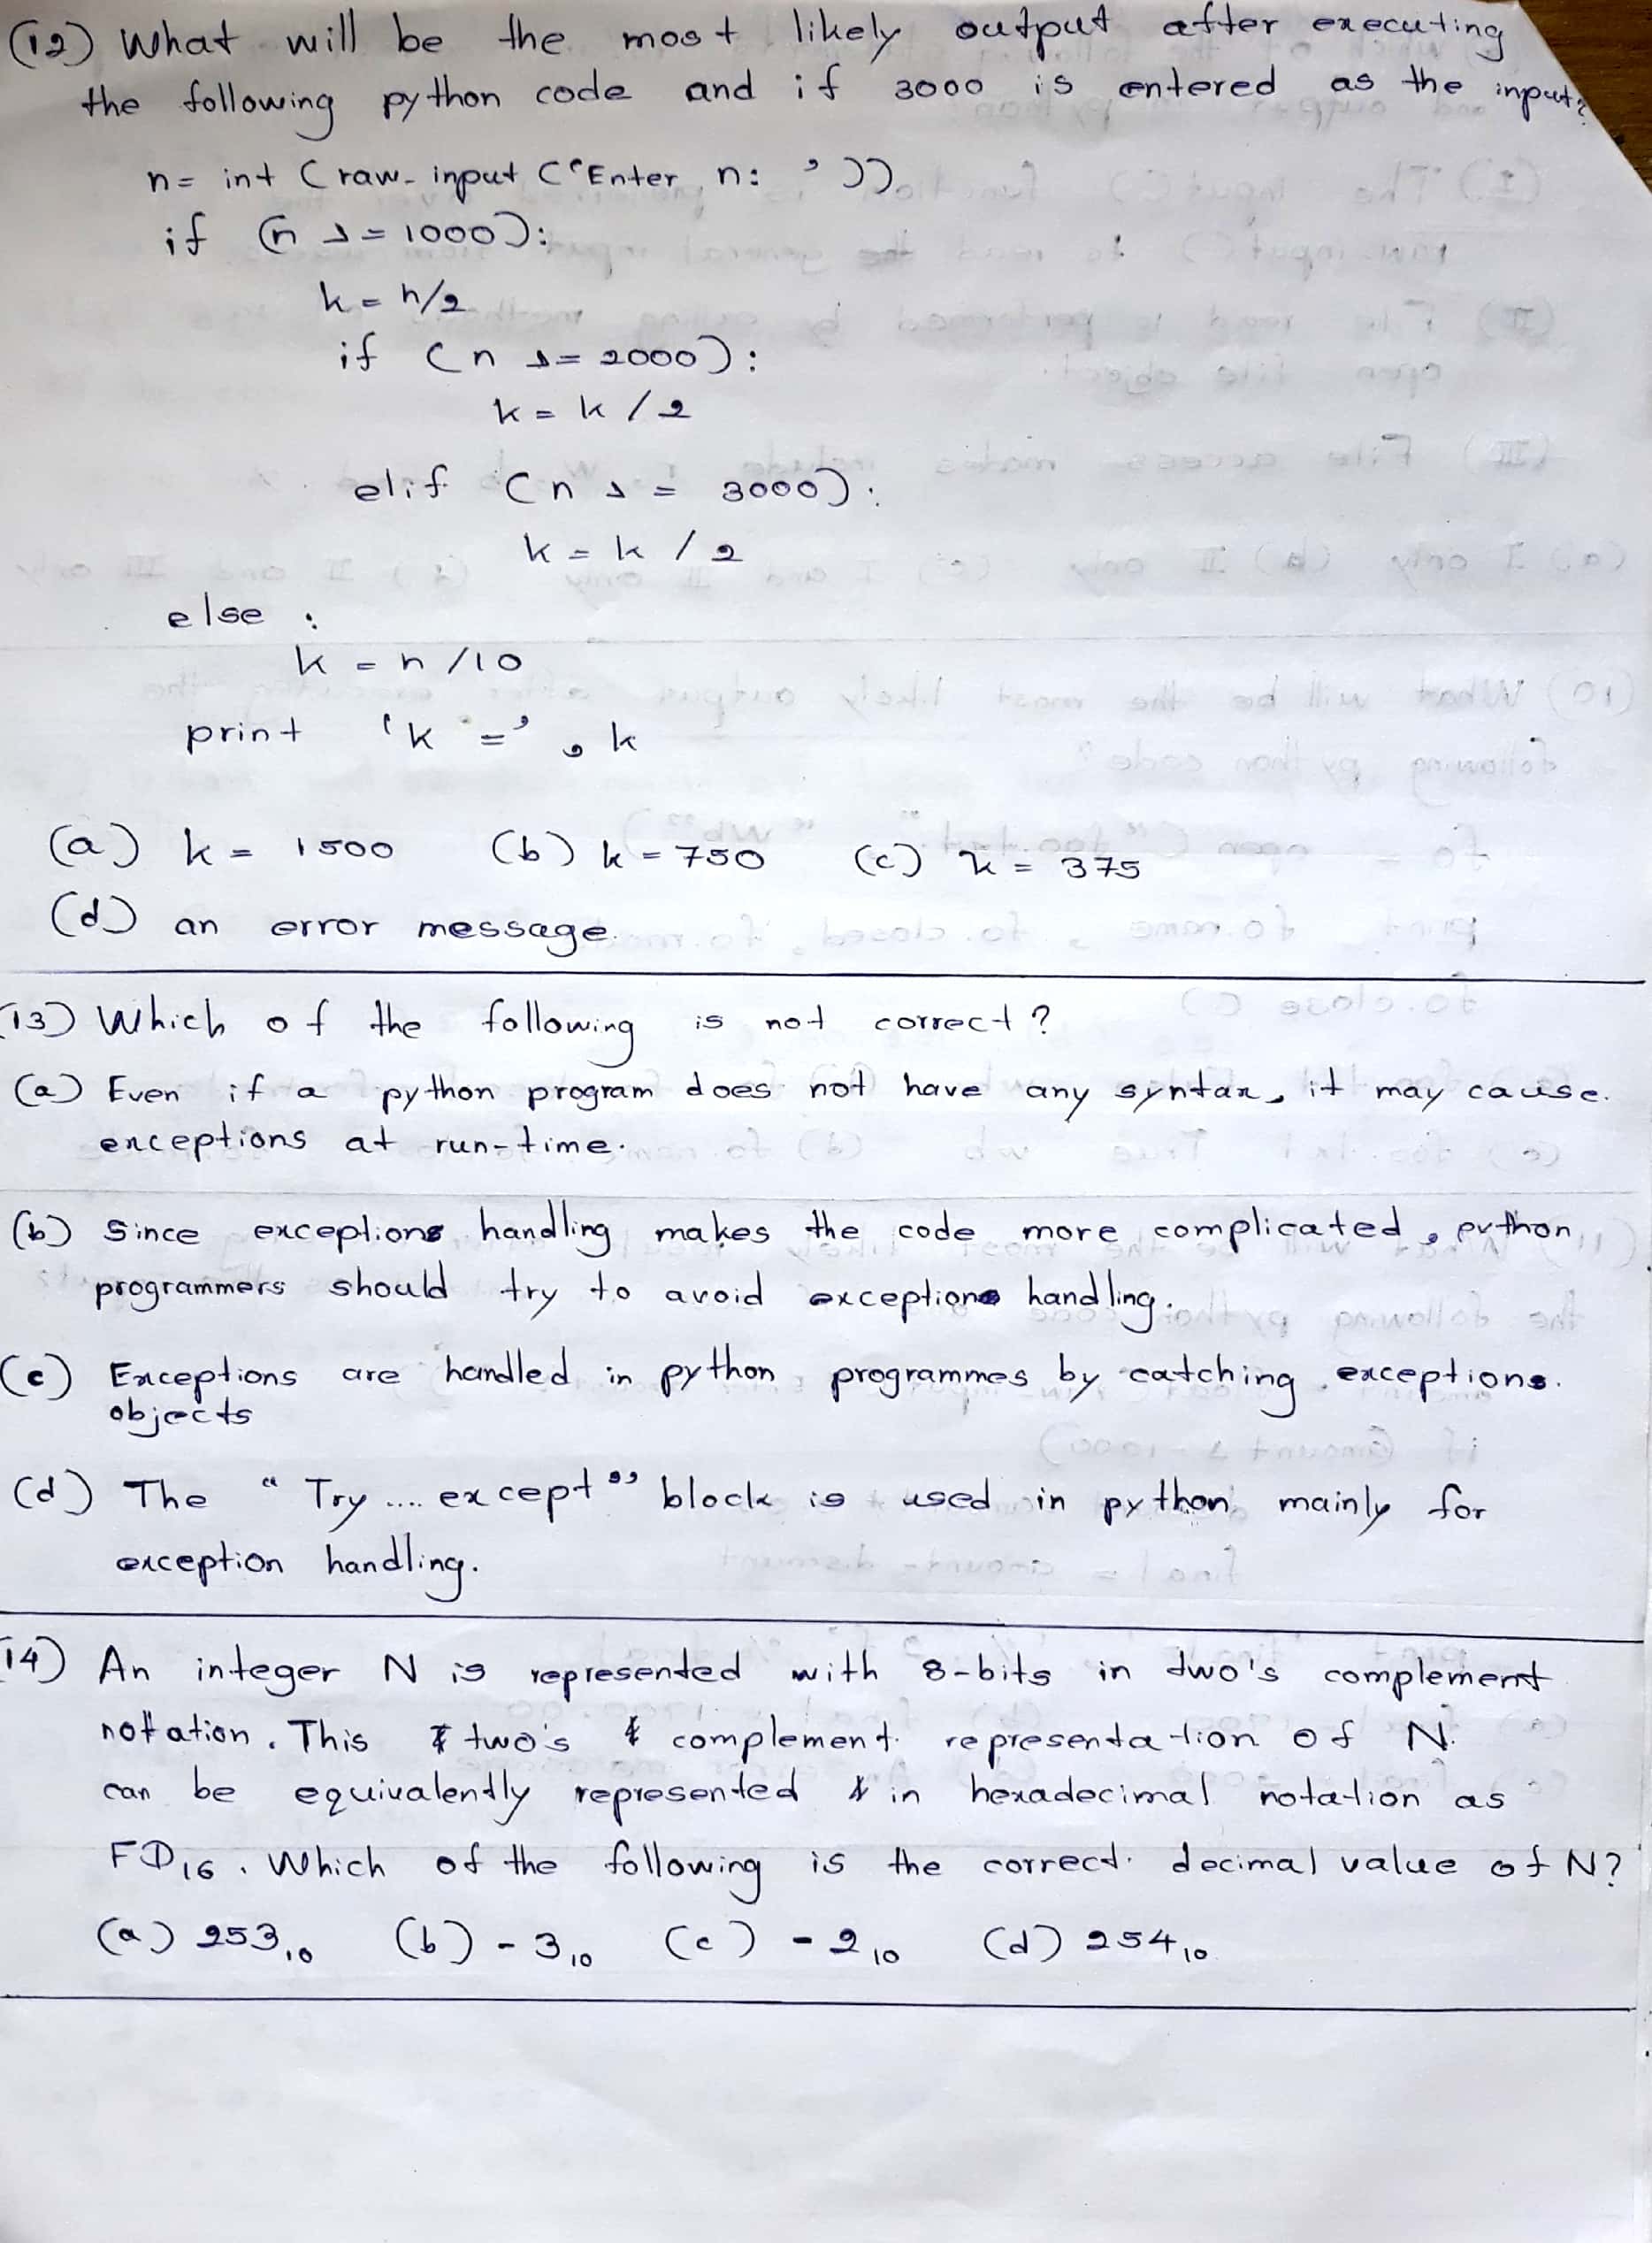 (12) What will be the most likely output after executing
the following python code and if 3000 is entered as the input?
n= int (raw-input ('Enter n: '))
if (n >= 1000):
k = n/2
if (n >= 2000):
k = k / 2
elif (n > = 3000):
k = k / 2
else :
k = n /10
print 'k =' , k
(a) k = 1500 (b) k = 750 (c) k = 375
(d) an error message.
(13) Which of the following is not correct?
(a) Even if a python program does not have any syntax, it may cause.
exceptions at run-time.
(b) Since exceptions handling makes the code more complicated, python
programmers should try to avoid exceptions handling.
(c) Exceptions are handled in python programmes by catching exceptions.
objects
(d) The "Try .... except" block is used in python mainly for
exception handling.
(14) An integer N is represented with 8-bits in two's complement
notation. This two's complement representation of N.
can be equivalently represented in hexadecimal notation as
FD16. Which of the following is the correct decimal value of N?
(a) 253₁₀ (b) -3₁₀ (c) -2₁₀ (d) 254₁₀